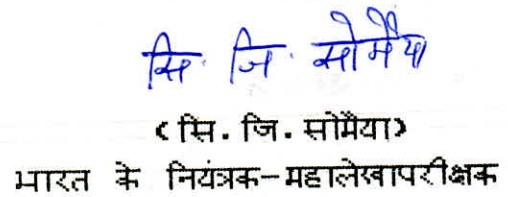 सि. जि. सोमैया
(सि. जि. सोमैया)
भारत के नियंत्रक-महालेखापरीक्षक